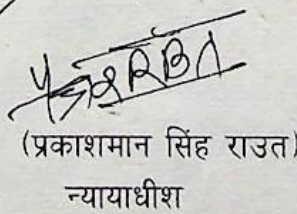 (प्रकाशमान सिंह राउत)
न्यायाधीश